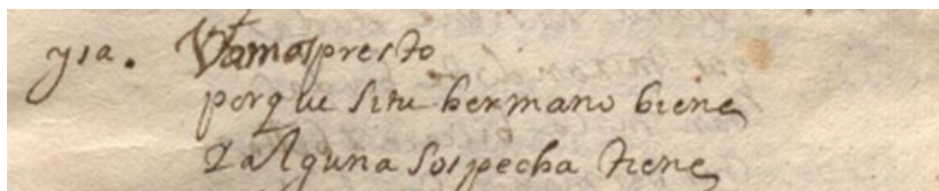 ysa. Vamos presto
porque si tu hermano biene
y alguna sospecha tiene